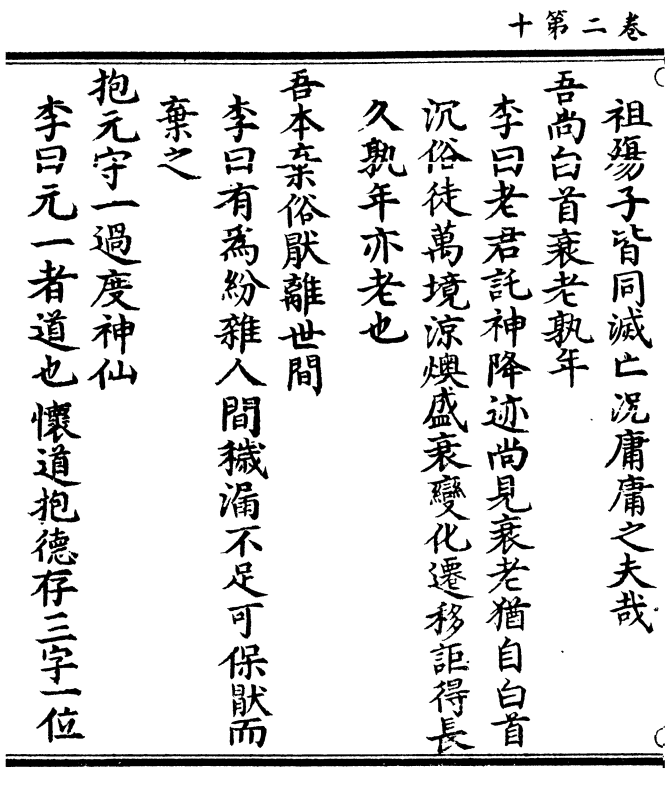 卷二第十
祖殤子皆同滅亡況庸庸之夫哉
吾尚白首衰老孰年
李曰老君託神降迹尚見衰老猶自白首
沉俗徒萬境涼燠盛衰變化遷移詎得長
久孰年亦老也
吾本棄俗厭離世間
李曰有為紛雜人間穢漏不足可保猒而
棄之
抱元守一過度神仙
李曰元一者道也懷道抱德存三字一位